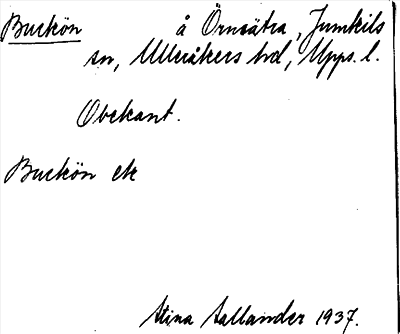 Buckön å Örnsätra, Jumkils
sn, Ulleråkers hd, Upps. l.
Obekant.
Buckön etc
Stina Sallander 1937.